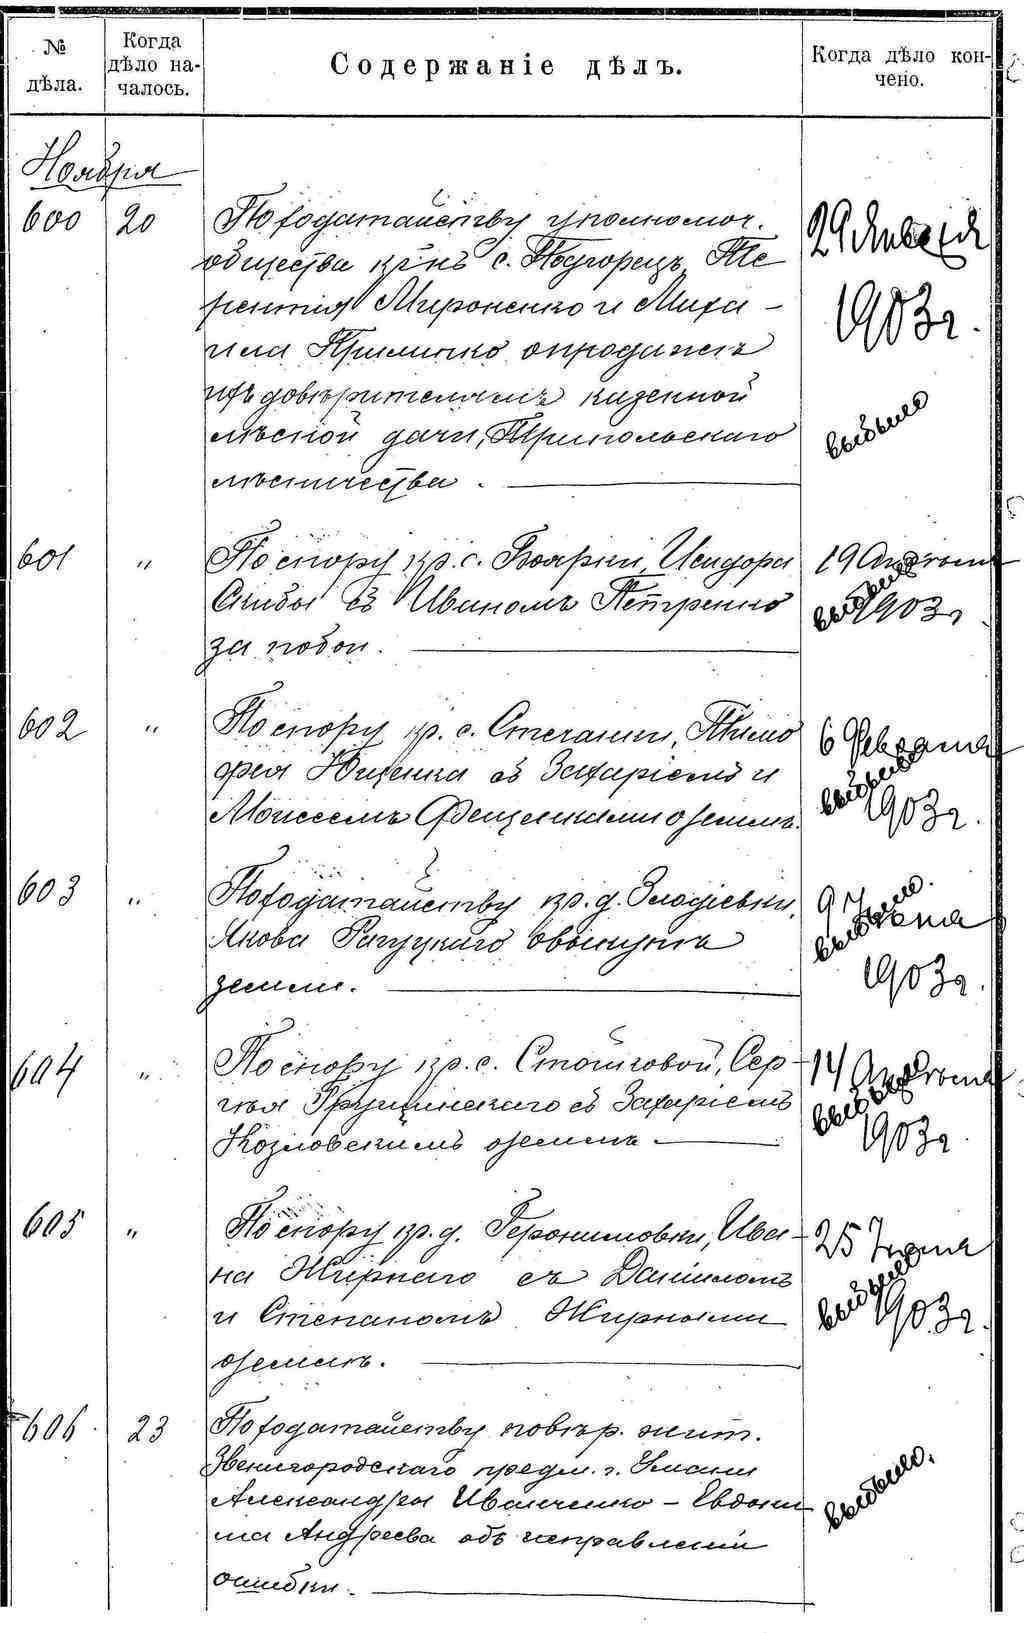 № дѣла.
Когда дѣло на-
чалось.
Содержаніе дѣлъ.
Когда дѣло кон-
чено.
Ноября
600 20 По ходатайству уполномоч.
общества кр-нъ с. Подгорецъ, Те
рентія Мироненко и Миха-
ила Примѣнко о продажѣ
ихъ довѣрителямъ казенной
лѣсной дачи, Трипольскаго
лѣсничества.
29 Января
1903 г.
выбыло
601 " По спору кр. с. Боярки, Исидора
Скибы съ Иваномъ Петренко
за побои.
19 Апрѣля
1903 г
выбыло
602 " По спору кр. с. Стечанки, Тимо
фея Ющенка съ Захаріемъ и
Моисеемъ Фещенками о землѣ.
6 Февраля
1903 г.
выбыло
603 " По ходатайству кр. д. Злодіевки,
Якова Рагуцкаго о выкупѣ
земли.
9 Іюня
1903 г.
выбыло.
604 " По спору кр. с. Стайковой, Сер-
гѣя Грущинскаго съ Захаріемъ
Козловскимъ о землѣ
14 Апрѣля
1903 г
выбыло
605 " По спору кр. д. Геронимовки, Ива-
на Жирнаго съ Даніиломъ
и Степаномъ Жирными
о землѣ.
25 Іюня
1903 г.
выбыло
606 23 По ходатайству повѣр. жит.
Звенигородскаго предм. г. Умани
Александры Иванченко - Евдоки
ма Андреева объ исправленіи
ошибки.
выбыло.